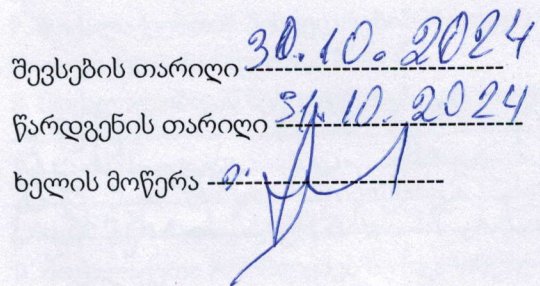 შევსების თარიღი 30.10.2024
წარდგენის თარიღი 31.10.2024
ხელის მოწერა